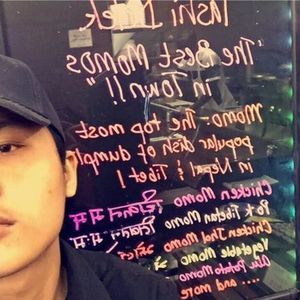 Tashi Delek
"The Best Momos
in Town!!"
Momo- The top most
popular dish of dumpl
in Nepal & Tibet!
Chicken Momo चिकन म म
Pork Tibetan Momo
Chicken Jhol Momo
Vegetable Momo
Alu Potato Momo
..... and more